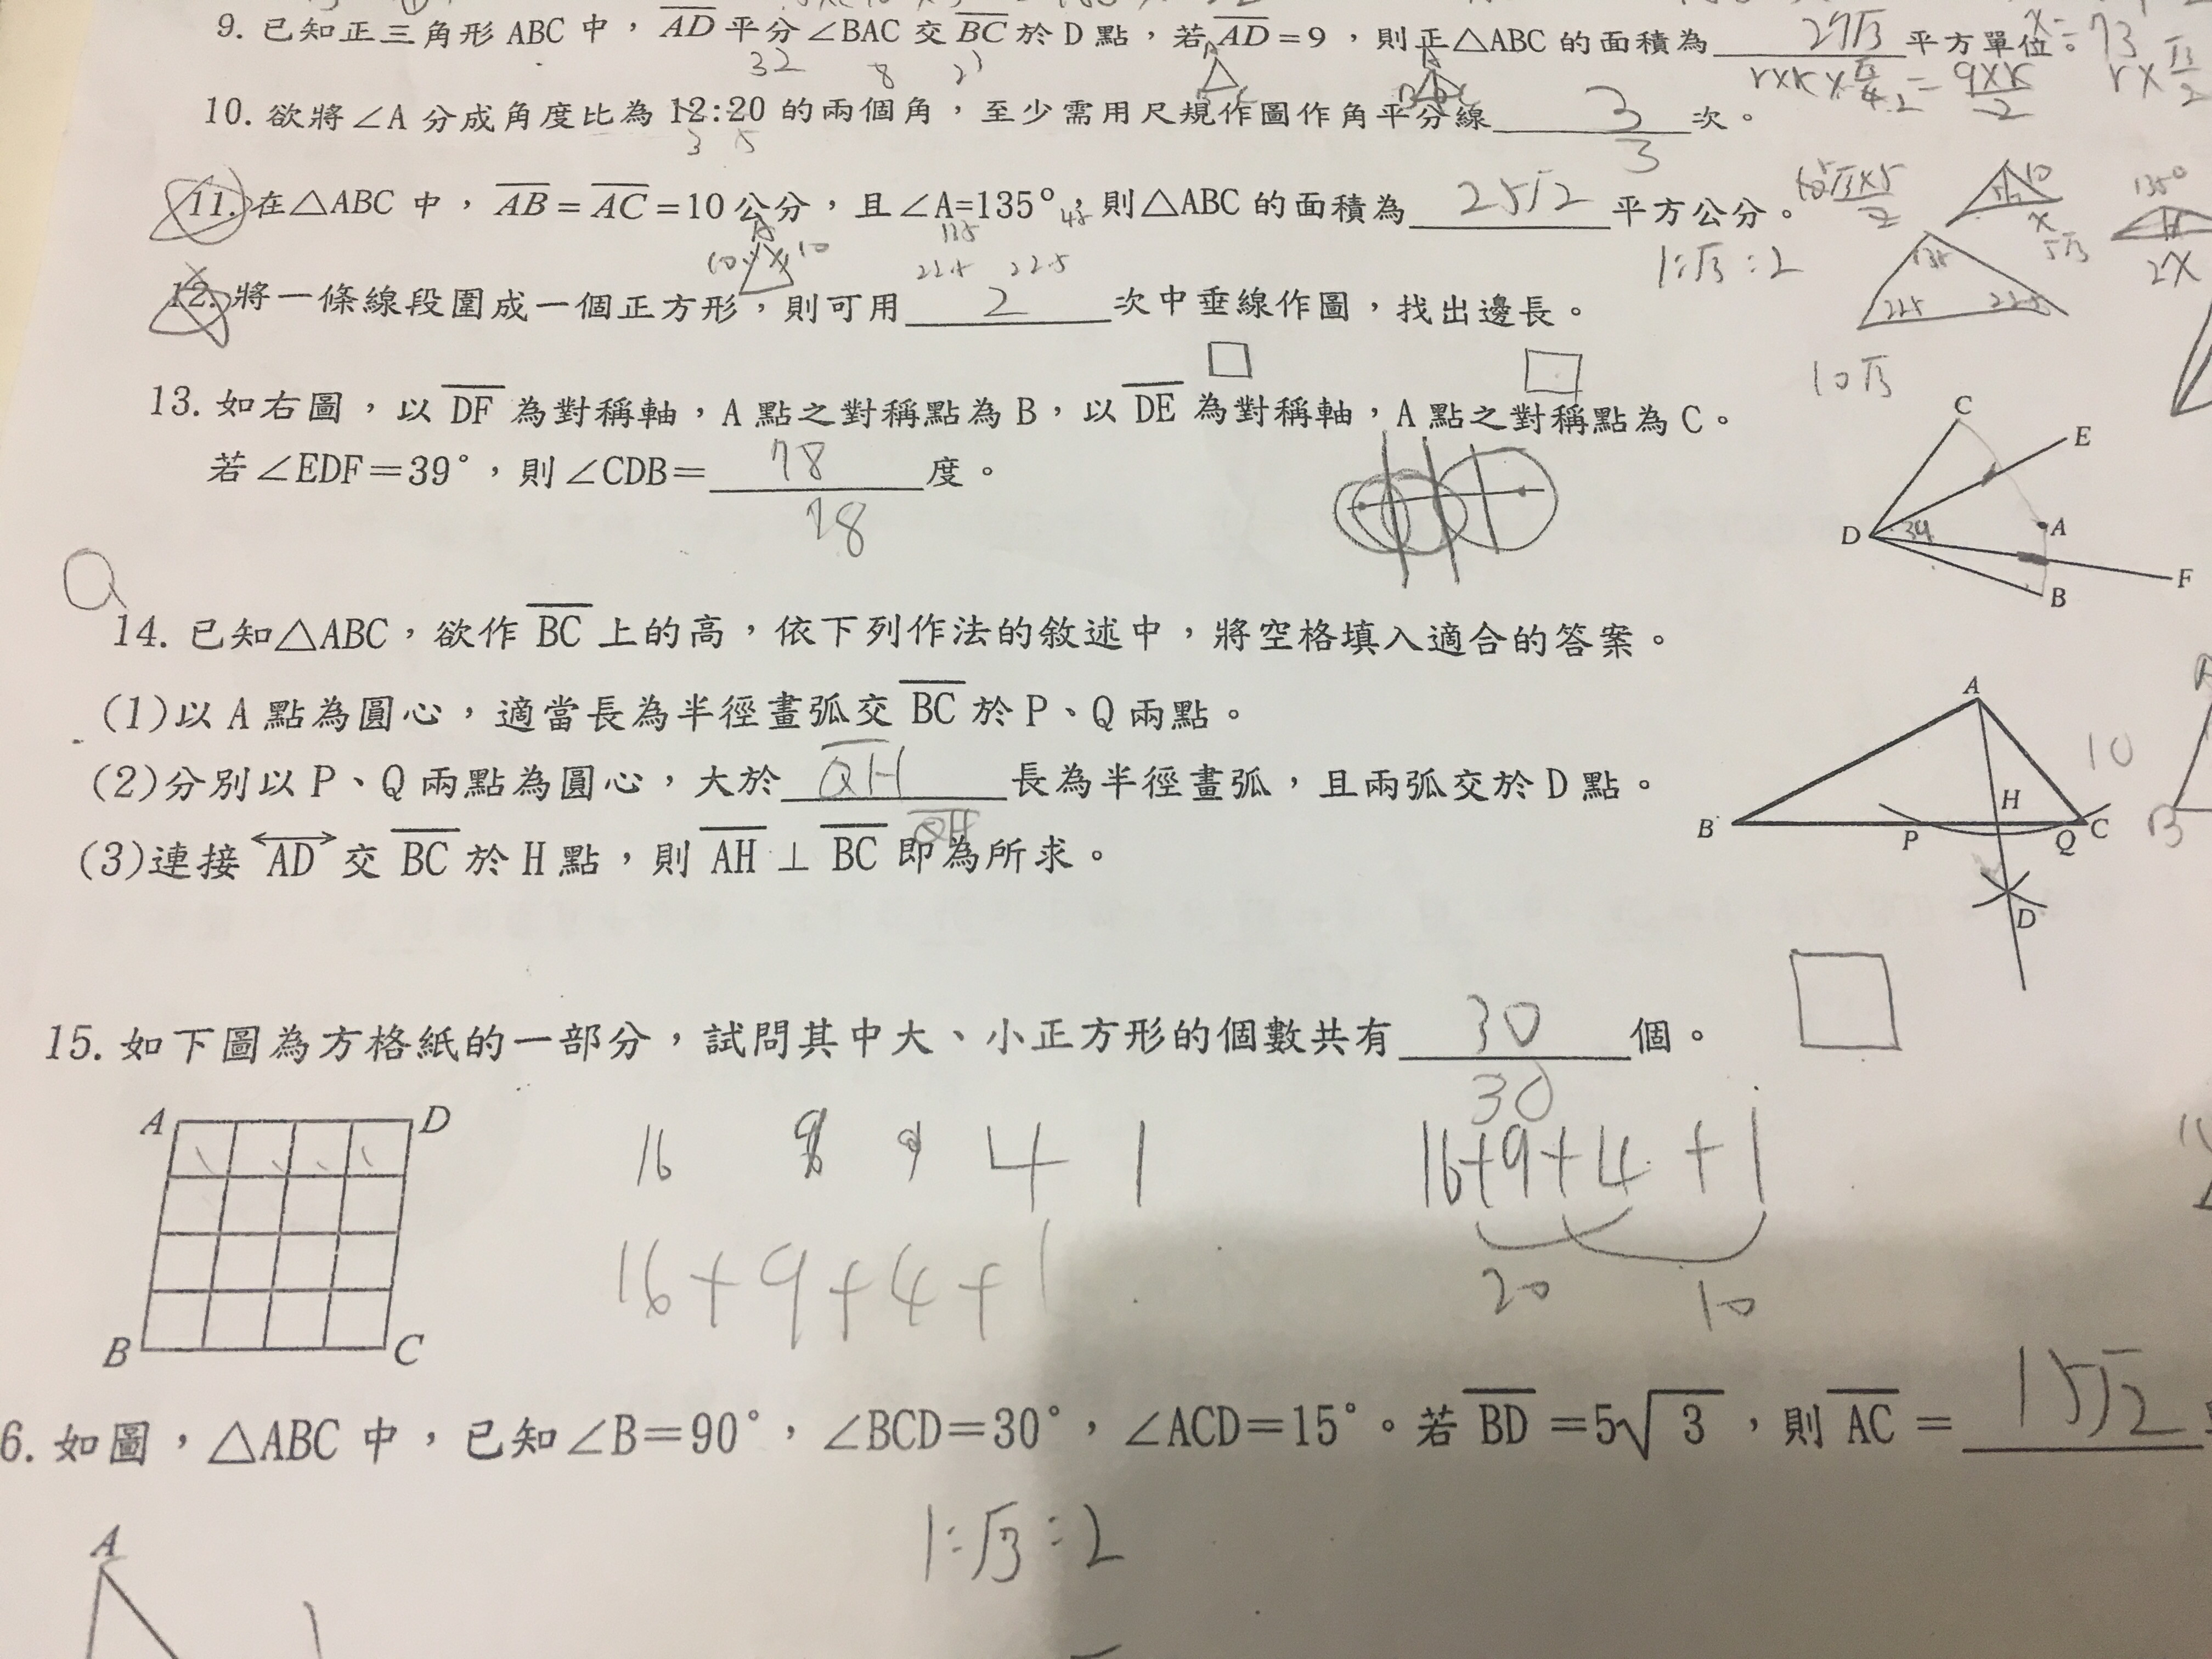 9. 已知正三角形 ABC 中，AD 平分∠BAC 交 BC 於 D 點，若 AD＝9，則正△ABC 的面積為 27√3 平方單位。
32 8
10. 欲將∠A 分成角度比為 12:20 的兩個角，至少需用尺規作圖作角平分線 3 次。
3 5 3
11. 在△ABC 中，AB＝AC＝10 公分，且∠A=135°，則△ABC 的面積為 25√2 平方公分。
10 10 135 45
22.5 22.5 1:√3:2
12. 將一條線段圍成一個正方形，則可用 2 次中垂線作圖，找出邊長。
10√3
13. 如右圖，以 DF 為對稱軸，A 點之對稱點為 B，以 DE 為對稱軸，A 點之對稱點為 C。
若∠EDF＝39°，則∠CDB＝ 78 度。
78
C
E
D 39 A
F
B
14. 已知△ABC，欲作 BC 上的高，依下列作法的敘述中，將空格填入適合的答案。
(1)以 A 點為圓心，適當長為半徑畫弧交 BC 於 P、Q 兩點。
(2)分別以 P、Q 兩點為圓心，大於 QH 長為半徑畫弧，且兩弧交於 D 點。
QH
(3)連接 AD 交 BC 於 H 點，則 AH ⊥ BC 即為所求。
A
10
H
B P Q C
D
15. 如下圖為方格紙的一部分，試問其中大、小正方形的個數共有 30 個。
30
A D
16 9 4 1
16+9+4+1
16+9+4+1
20 10
B C
6. 如圖，△ABC 中，已知∠B＝90°，∠BCD＝30°，∠ACD＝15°。若 BD＝5√3，則 AC＝ 15√2
1:√3:2
A